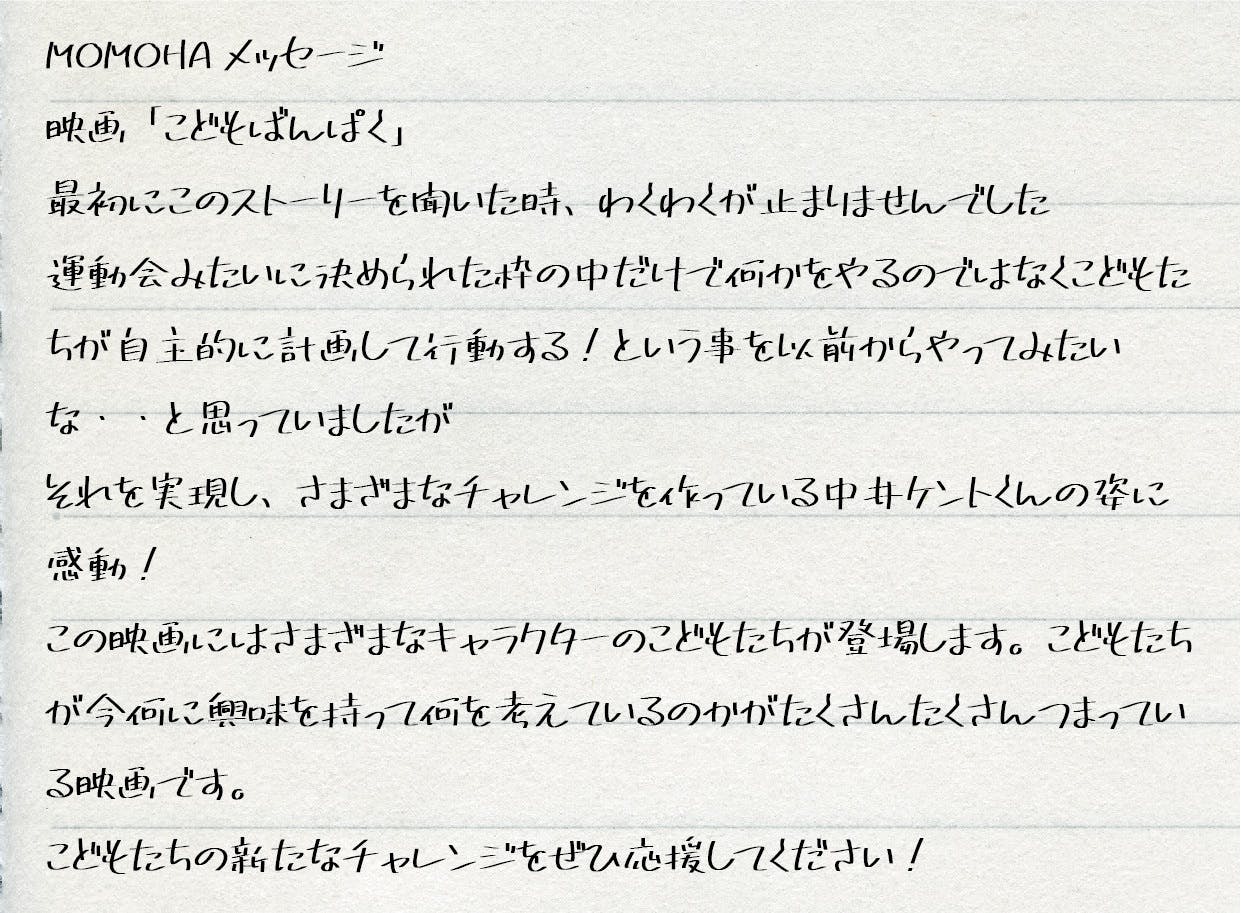 MOMOHA メッセージ
映画「こどもばんぱく」
最初にこのストーリーを聞いた時、わくわくが止まりませんでした
運動会みたいに決められた枠の中だけで何かをやるのではなくこどもた
ちが自主的に計画して行動する!という事を以前からやってみたい
な・・と思っていましたが
それを実現し、さまざまなチャレンジを作っている中井ケントくんの姿に
感動!
この映画にはさまざまなキャラクターのこどもたちが登場します。こどもたち
が今何に興味を持って何を考えているのかがたくさんたくさんつまってい
る映画です。
こどもたちの新たなチャレンジをぜひ応援してください!